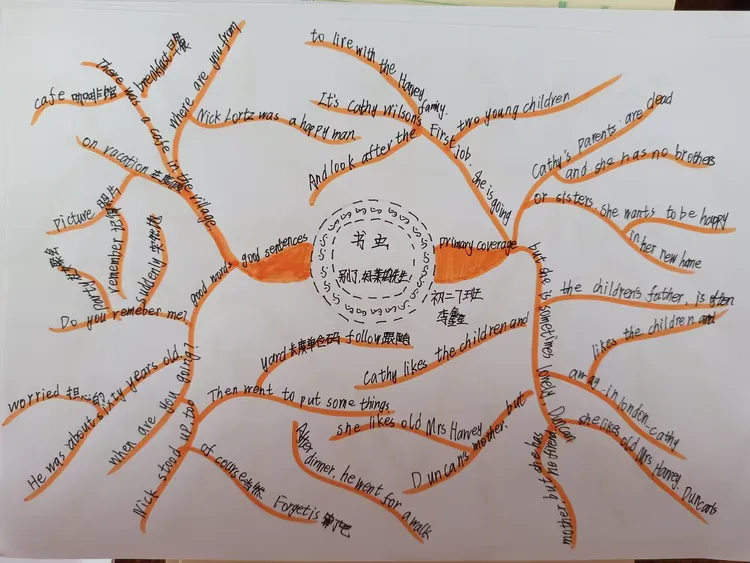 书虫
别了,好莱坞先生
初二7班
primary coverage
good sentences
good words
to live with the Harvey family.
It's Cathy Wilson's First job. she is going
And look after the
two young children
Cathy's parents are dead
and she has no brothers
or sisters she wants to be happy
in her new home
but she is sometimes lonely Duncan
the children's father, is often
likes the children and
away in london cathy
she likes old Mrs Harvey. Duncan's
mother but she has no friend
Cathy likes the children and
she likes old Mrs Harvey
Duncan's mother. but
There was a cafe in the village.
cafe 咖啡馆
breakfast 早餐
where are you from
Nick Lortz was a happy man
on vacation 去度假
Picture 照片
remember 记得
suddenly 突然地
Do you remeber me?
worried 担心的
He was about sixty years old.
when are you going?
Nick stood up too
Then went to put some things
yard 长度单位码 follow 跟随
of course 当然 Forget is 算了吧
After dinner, he went for a walk